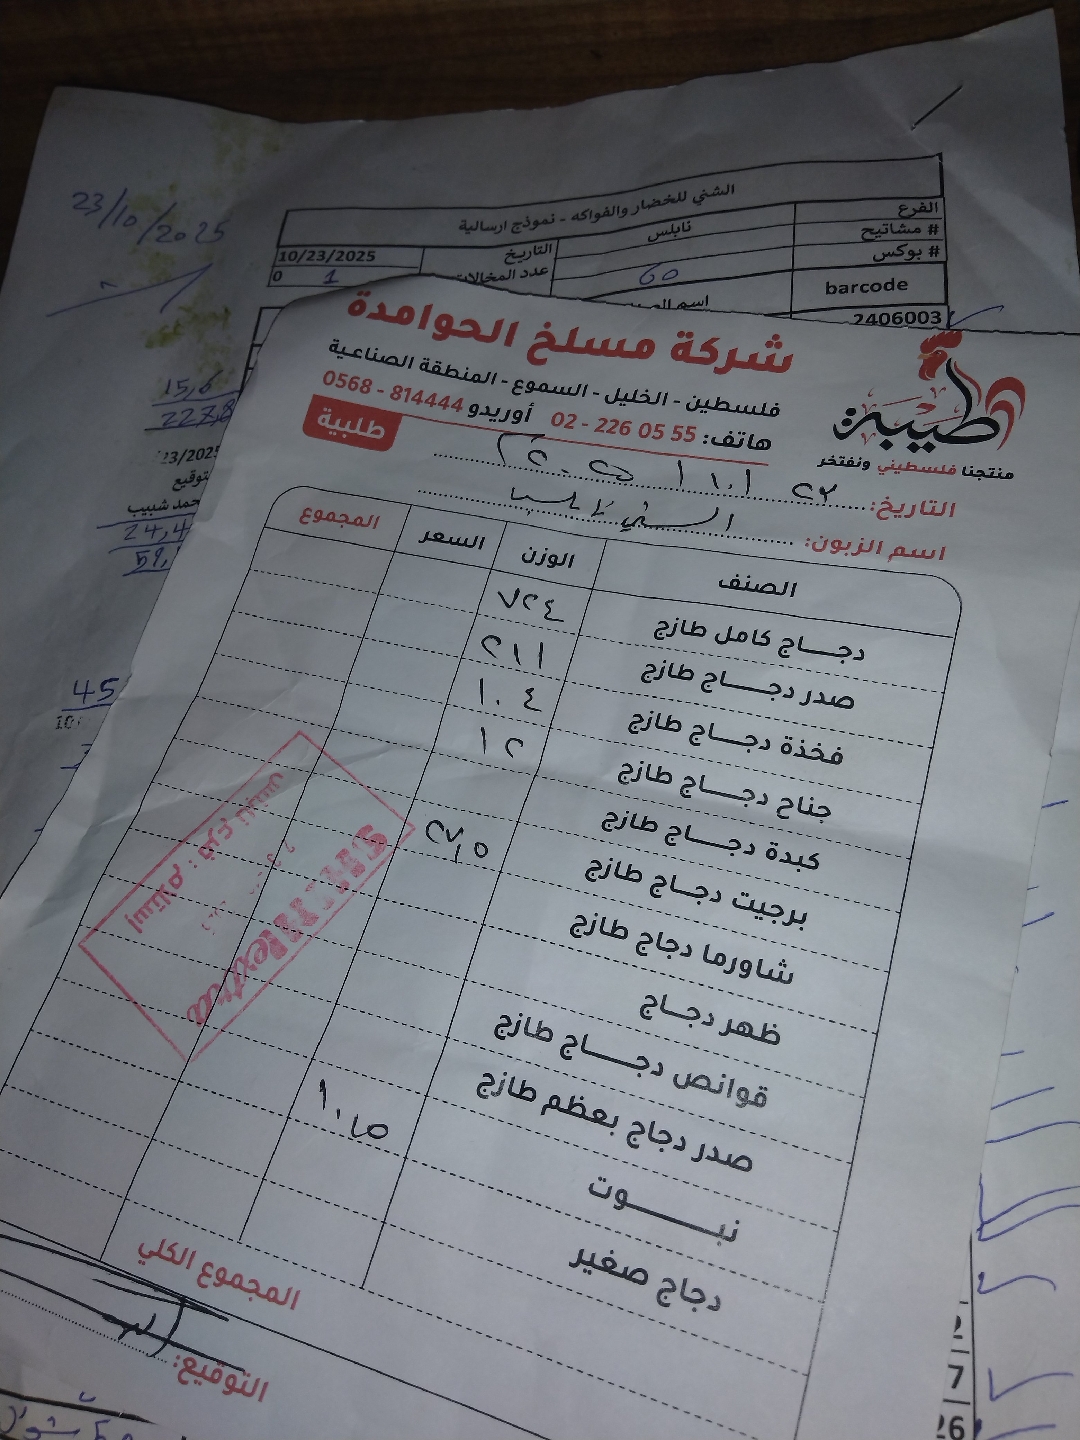 23/10/2025
الشني للخضار والفواكه - نموذج ارسالية
الفرع
نابلس
التاريخ
10/23/2025
# مشاتيح
# بوكس
60
عدد المخالات
1
0
barcode
2406003
15,6
227,8
توقيع
حمد شبيب
24,4
45
شركة مسلخ الحوامدة
فلسطين - الخليل - السموع - المنطقة الصناعية
هاتف: 02 - 226 05 55 أوريدو 0568 - 814444
طلبية
طيبة
منتجنا فلسطيني ونفتخر
التاريخ:
اسم الزبون:
الصنف الوزن السعر المجموع
دجاج كامل طازج ٧٢٤
صدر دجاج طازج ٢١١
فخذة دجاج طازج ١٠٤
جناح دجاج طازج ١٢
كبدة دجاج طازج
برجيت دجاج طازج ٢٧,٥
شاورما دجاج طازج
ظهر دجاج
قوانص دجاج طازج
صدر دجاج بعظم طازج
نبوت
دجاج صغير
المجموع الكلي
التوقيع:
7
26